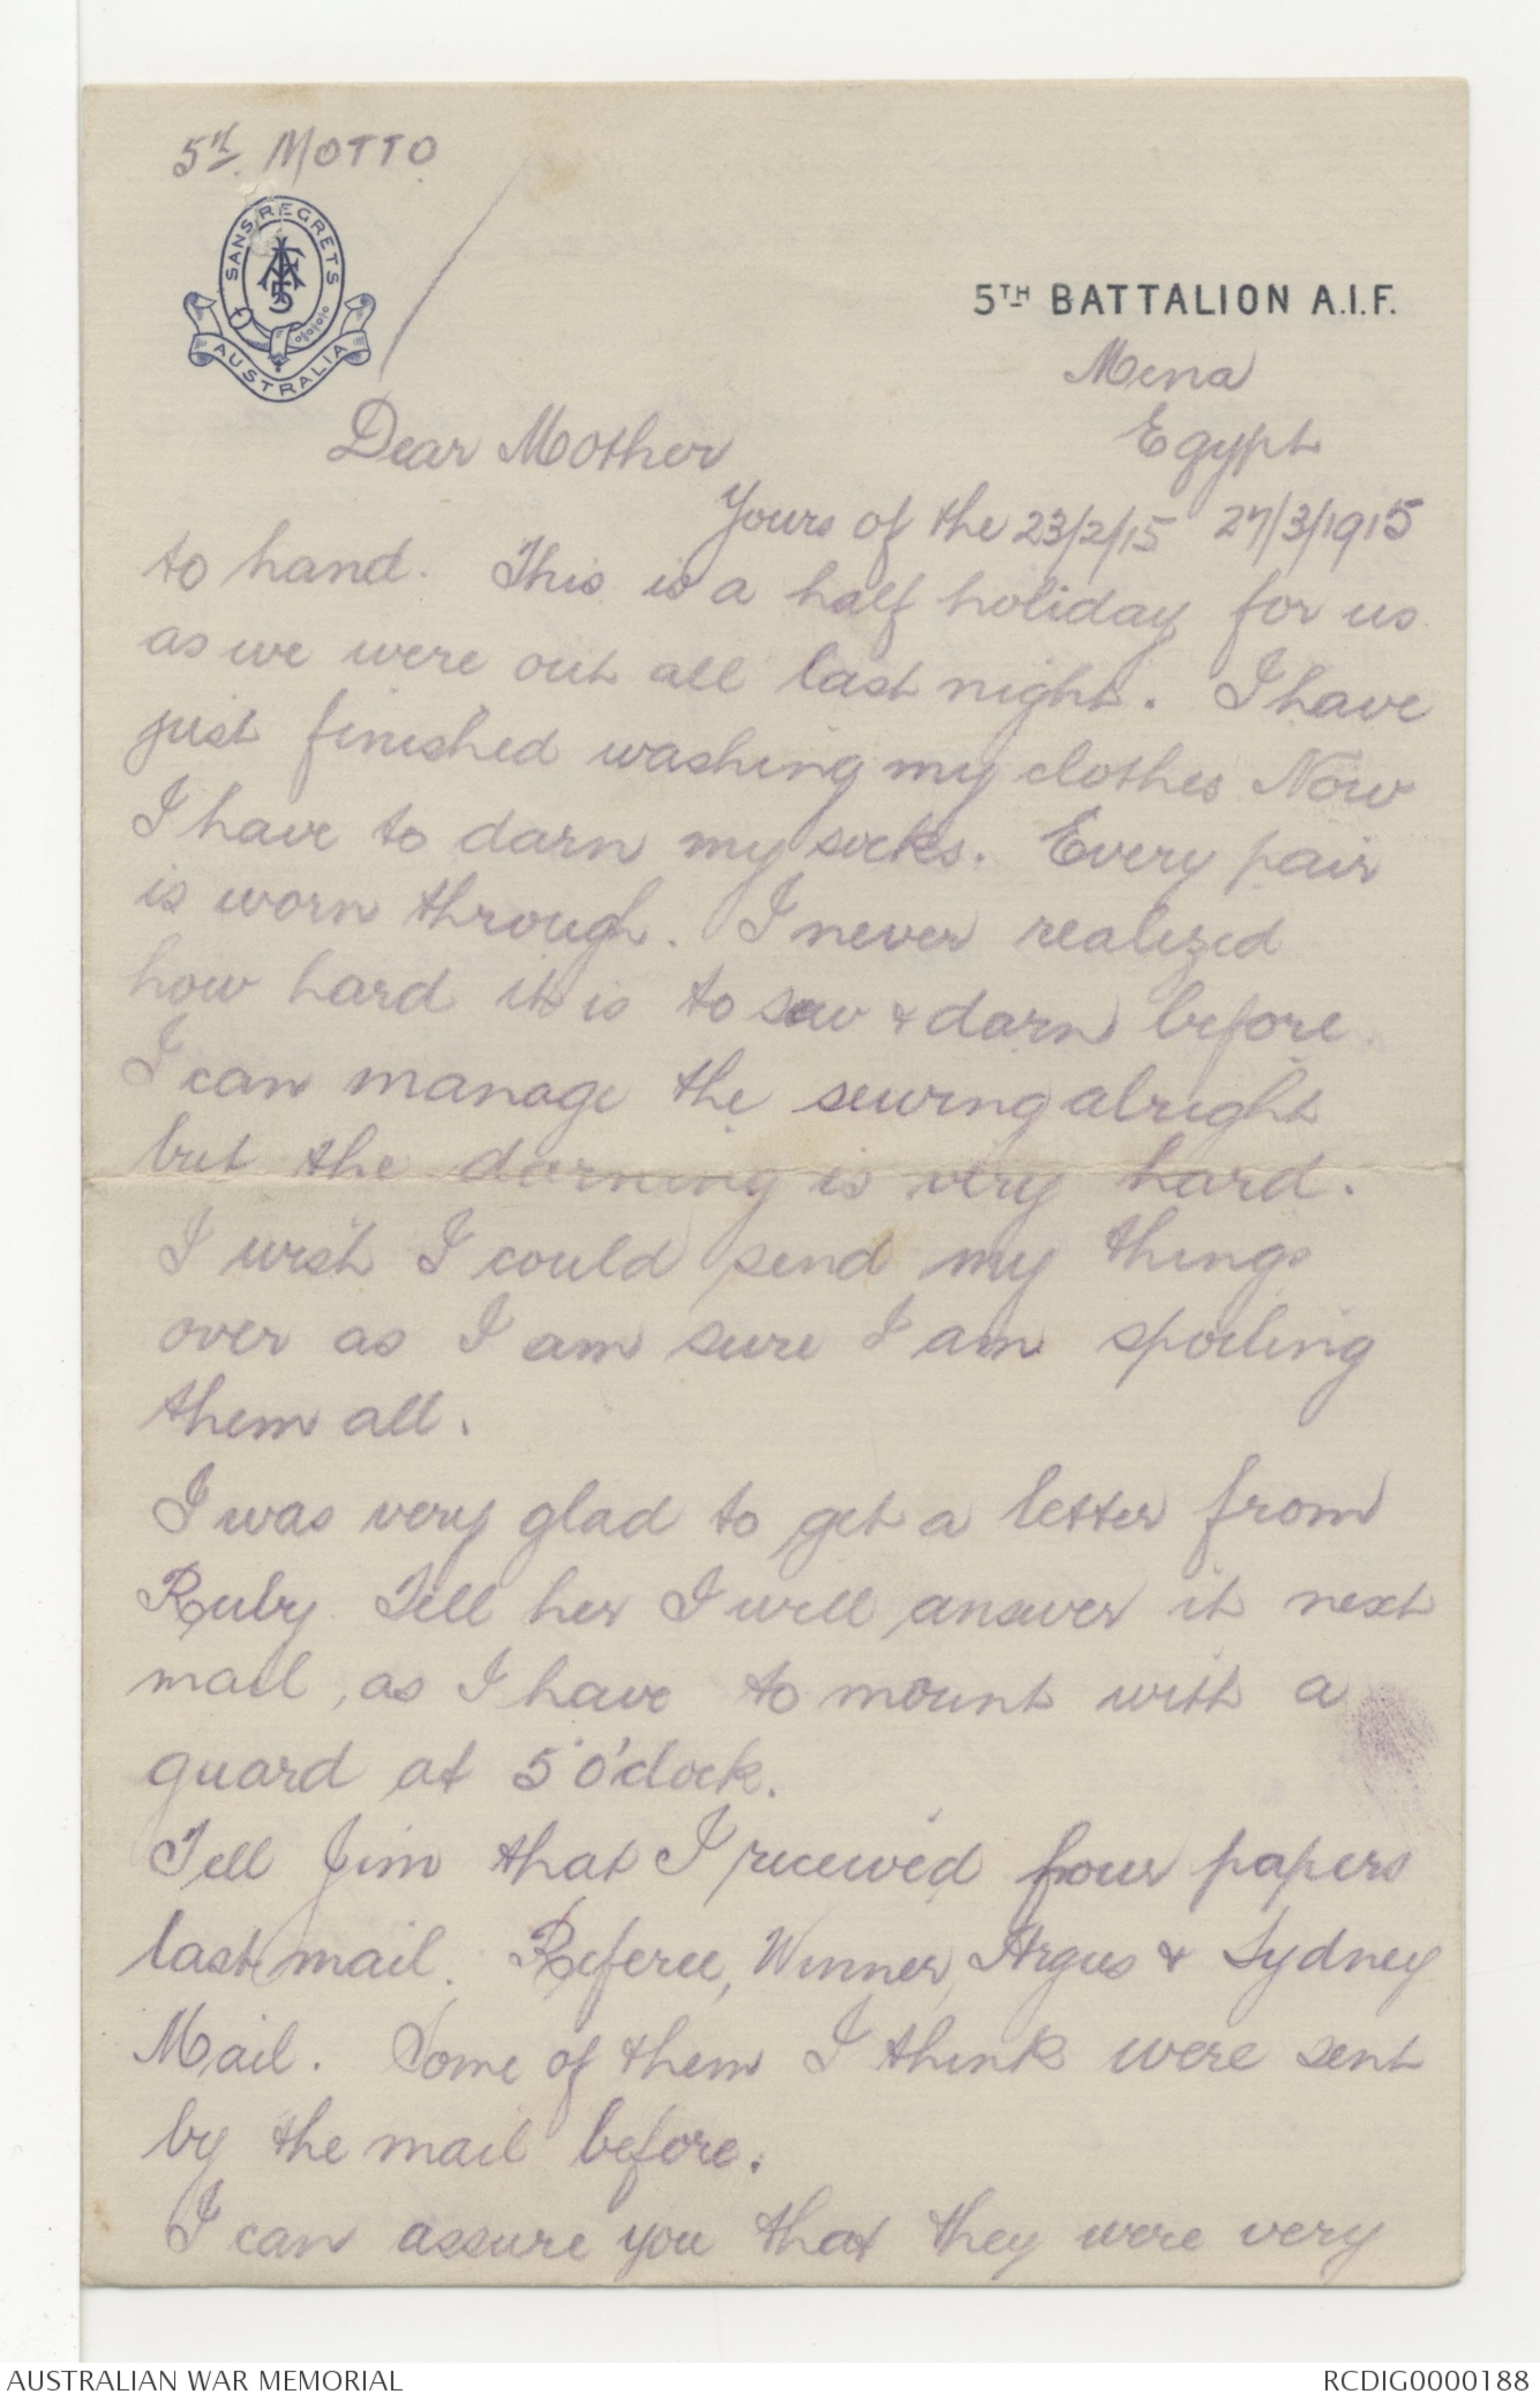 5th. MOTTO
SANS REGRETS
AIF
5
AUSTRALIA
5TH BATTALION A.I.F.
Mena
Egypt
27/3/1915
Dear Mother
Yours of the 23/2/15
to hand. This is a half holiday for us
as we were out all last night. I have
just finished washing my clothes Now
I have to darn my socks. Every pair
is worn through. I never realized
how hard it is to sew & darn before.
I can manage the sewing alright
but the darning is very hard.
I wish I could send my things
over as I am sure I am spoiling
them all.
I was very glad to get a letter from
Ruby. Tell her I will answer it next
mail, as I have to mount with a
guard at 5 o'clock.
Tell Jim that I received four papers
last mail. Referee, Winner, Argus & Sydney
Mail. Some of them I think were sent
by the mail before.
I can assure you that they were very
AUSTRALIAN WAR MEMORIAL
RCDIG0000188